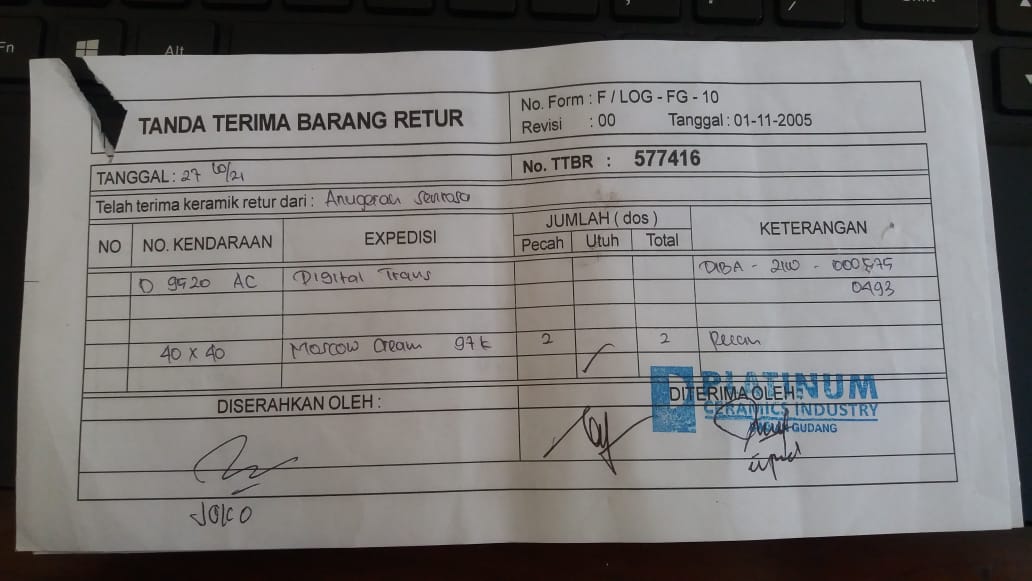 Fn
Alt
TANDA TERIMA BARANG RETUR
No. Form : F / LOG - FG - 10
Revisi : 00 Tanggal : 01-11-2005
TANGGAL : 27 10/21
No. TTBR : 577416
Telah terima keramik retur dari : Anugerah Sentosa
NO NO. KENDARAAN EXPEDISI JUMLAH ( dos ) KETERANGAN
Pecah Utuh Total
D 9520 AC Digital Trans
0493
40 x 40 Moscow Cream 97 k 2 2 Pecah
DISERAHKAN OLEH : DITERIMA OLEH :
PLATINUM
CERAMICS INDUSTRY
GUDANG
JOKO